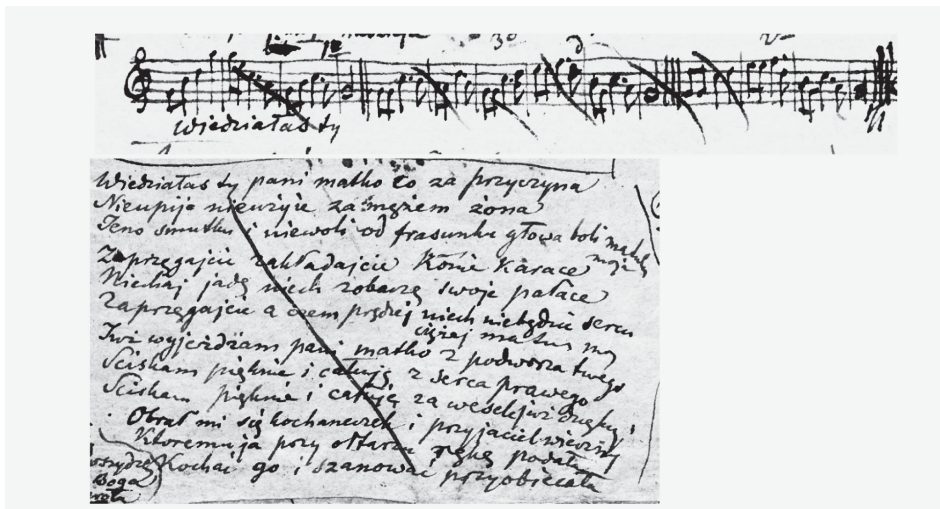 Wiedziałaś ty
Wiedziałaś ty pani matko co za przyczyna
Nieupije nieużyie za mężem żona
Jeno smutku i niewoli od frasunku głowa boli matulu
moja
Zaprzęgajcie zakładajcie Konie Karace
Niechaj jadę niech zobaczę swoje pałace
Zaprzęgajcie a czem prędzej niech niebędzie sercu
ciężej matuś mo
Już wyjeżdżam pani matko z podworza twego
Sciskam pięknie i całuję z serca prawego
Sciskam pięknie i całuję za
Obrał mi się kochaneczek i przyjaciel wieczny
Ktoremu ja przy ołtarzu rękę podała
Kochać go i szanować przyobiecała
Boga